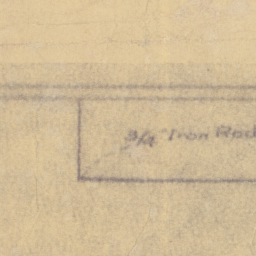 3/4" Iron Rod